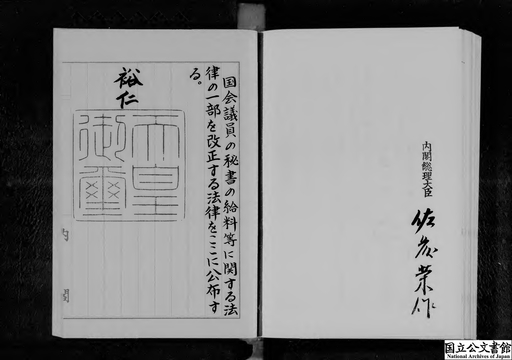 内閣総理大臣
佐藤榮作
国会議員の秘書の給料等に関する法
律の一部を改正する法律をここに公布す
る。
裕仁
天皇
御璽
内閣
国立公文書館
National Archives of Japan